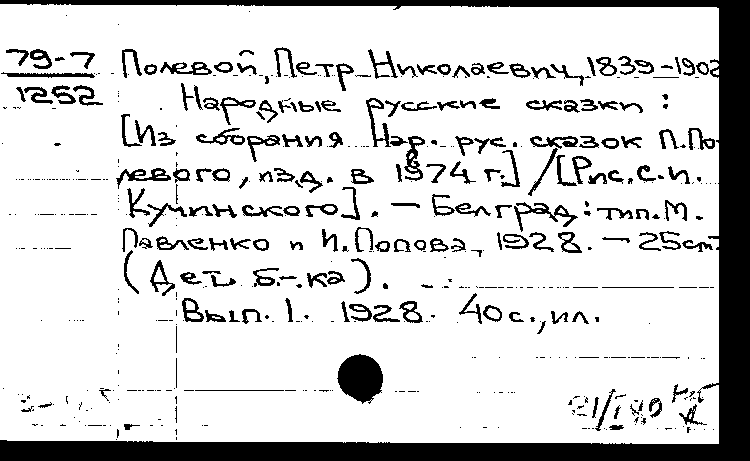 79-7
1252
Полевой, Петр Николаевич, 1839-1902
Народные русские сказки :
[Из собрания Нар. рус. сказок П.По-
левого, изд. в 1874 г.] / [Рис. С.И.
Кучинского]. — Белград: тип. М.
Павленко и И. Попова, 1928. — 25см.
(Дет. б-ка).
Вып. 1. 1928. 40 с., ил.
21/I 80